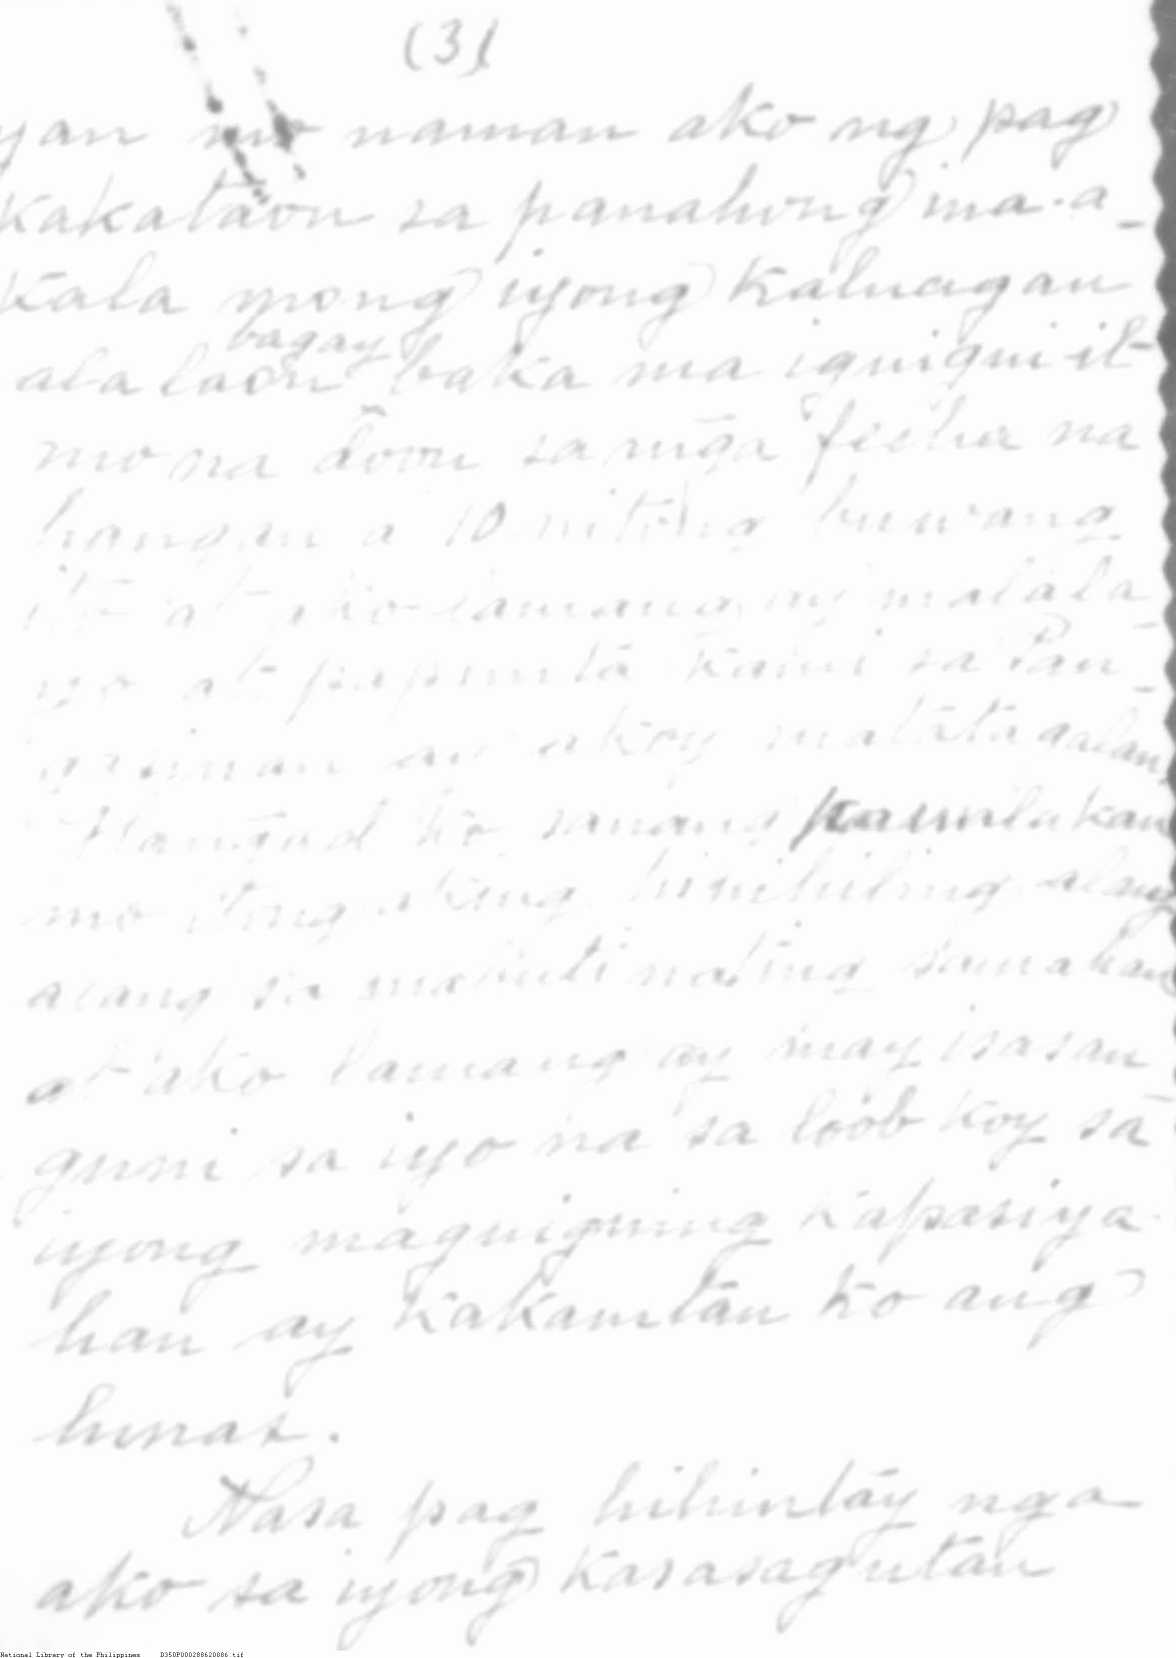 (3)
yan mo naman ako ng pag
kakataon sa panahong ma-a
kala mong iyong kaluagan
bagay
ala laon baka ma iguiguiit
mo na doon sa mḡa fecha na
hangan a 10 nitong buwang
ito at ako lamang ay malala
yo at papunta kami sa Pan
gasinan at akoy matatagalan
Hangad ko sanang
mo itong aking hinihiling alang
alang sa mabuti nating samahan
at ako lamang ay may isasan
guni sa iyo na sa loob koy sa
iyong maguiguing kapasiya
han ay kakamtan ko ang
lunas.
Nasa pag hihintay nga
ako sa iyong kasasagutan
National Library of the Philippines D350P000288620086.tif